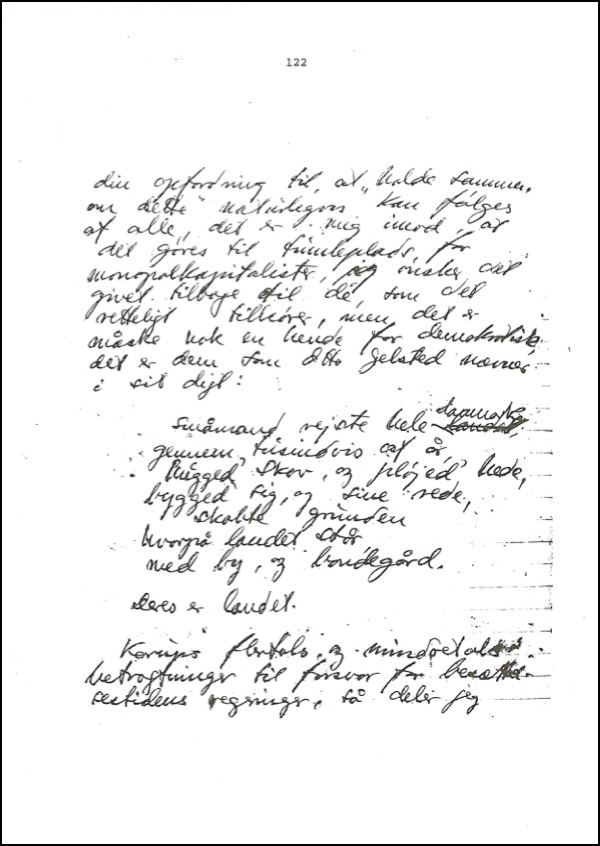 122
din opfordring til, at „holde sammen
om dette" naturligvis kan følges
af alle, det er mig imod, at
det gøres til tumleplads, for
monopolkapitalister, og ønsker det
givet tilbage til de, som det
retteligt tilhører, men det er
måske nok en kende for demokratisk,
det er dem som Otto Gelsted nævner
i sit digt:
Småmænd rejste hele danmark,
gennem tusindvis af år,
hugged' skov, og pløjed' hede,
bygged' sig, og sine rede,
skabte grunden
hvorpå landet står
med by, og bondegård.
Deres er landet.
flertals og mindretals
betragtninger til forsvar for besæt-
testidens regeringer, så deler jeg